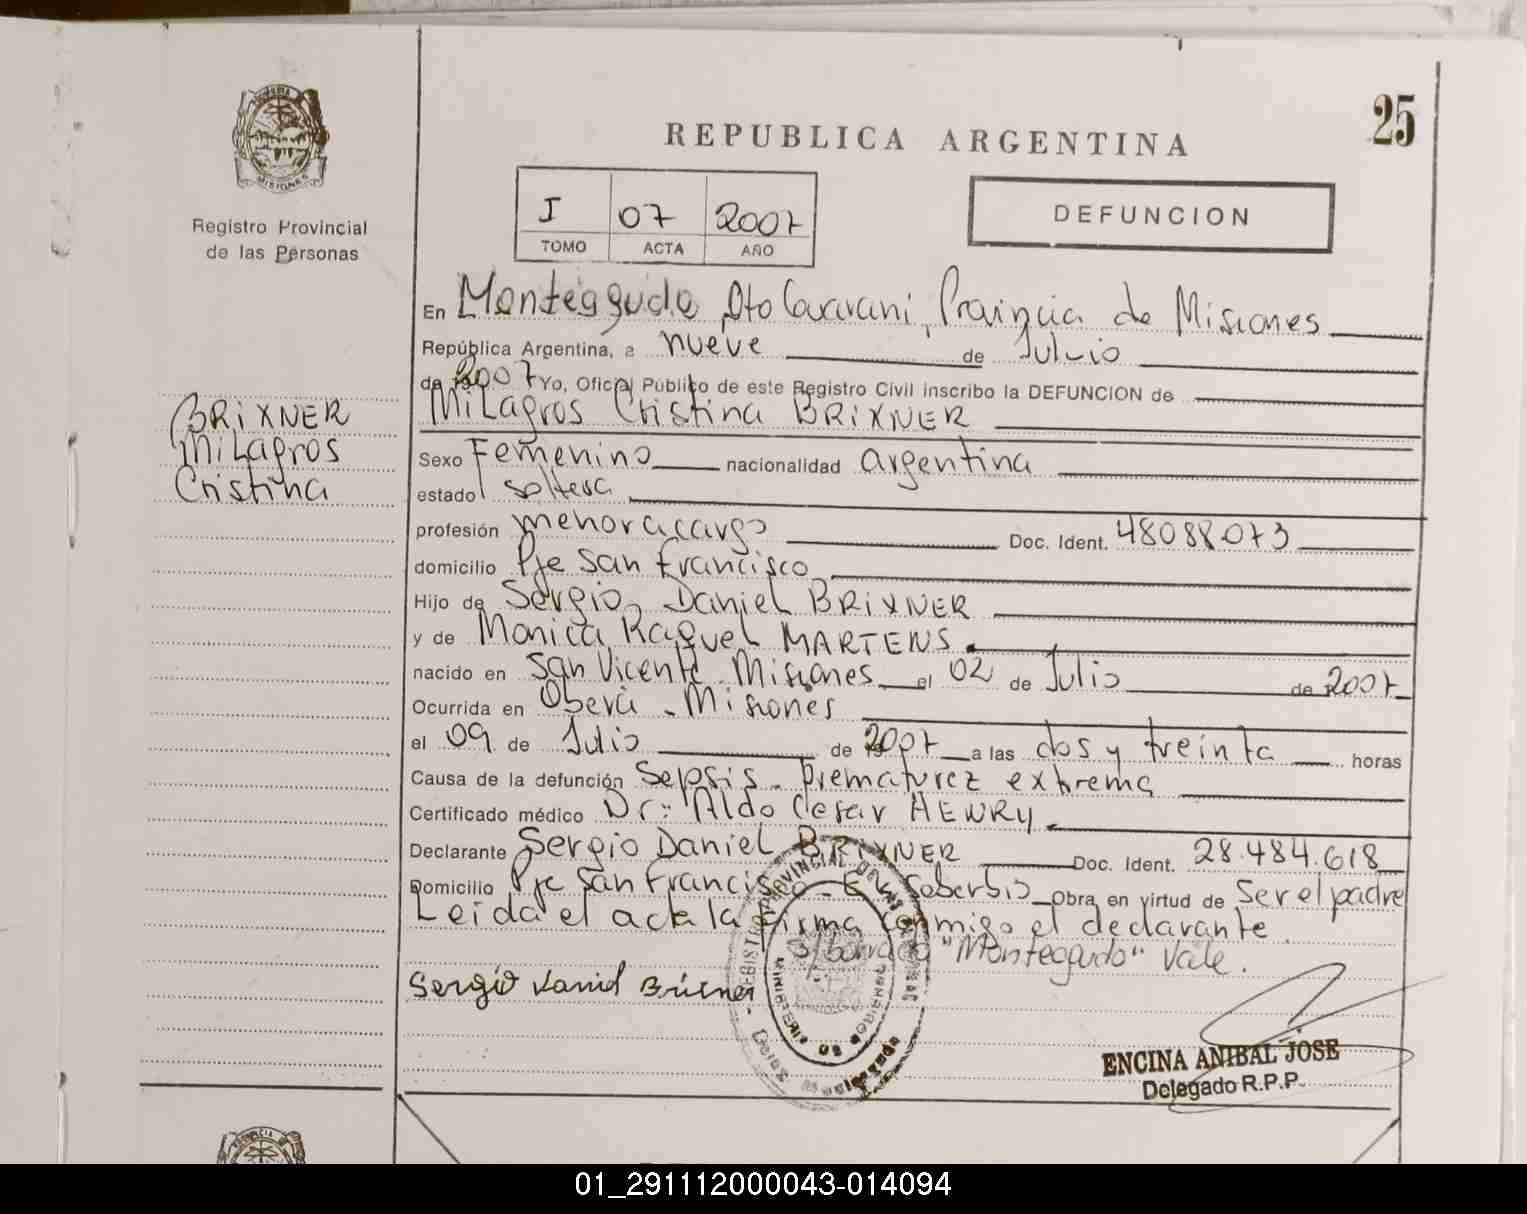 25
REPUBLICA ARGENTINA
PROVINCIA DE
MISIONES
Registro Provincial
de las Personas
I 07 2007
TOMO ACTA AÑO
DEFUNCION
En Monteagudo, Dto Guarani, Provincia de Misiones
República Argentina, a nueve de Julio
de 2007 Yo, Oficial Público de este Registro Civil inscribo la DEFUNCION de
BRIXNER
Milagros
Cristina
Milagros Cristina BRIXNER
Sexo Femenino nacionalidad argentina
estado soltera
profesión menor a cargo Doc. Ident. 48088073
domicilio Pje San Francisco
Hijo de Sergio Daniel BRIXNER
y de Monica Raquel MARTENS
nacido en San Vicente Misiones el 02 de Julio de 2007
Ocurrida en Oberá - Misiones
el 09 de Julio de 2007 a las dos y treinta horas
Causa de la defunción Sepsis - Prematurez extrema
Certificado médico Dr: Aldo Cesar HENRY
Declarante Sergio Daniel BRIXNER Doc. Ident. 28.484.618
Domicilio Pje San Francisco - El Soberbio Obra en virtud de Ser el padre
Leida el acta la firma conmigo el declarante.
S/borrado "Monteagudo" Vale.
Sergio Daniel Brixner
REGISTRO PROVINCIAL DE LAS PERSONAS
MINISTERIO DE GOBIERNO
ENCINA ANIBAL JOSE
Delegado R.P.P.
01_291112000043-014094